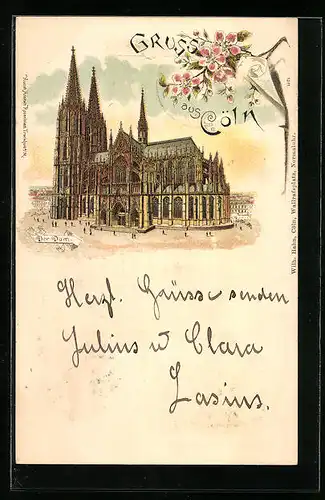 GRUSS
aus
Cöln
Der Dom.
Wilh. Hahn, Cöln, Wallrafsplatz, Normaluhr.
Herzl. Grüsse senden
Julius u Clara
Lasius.